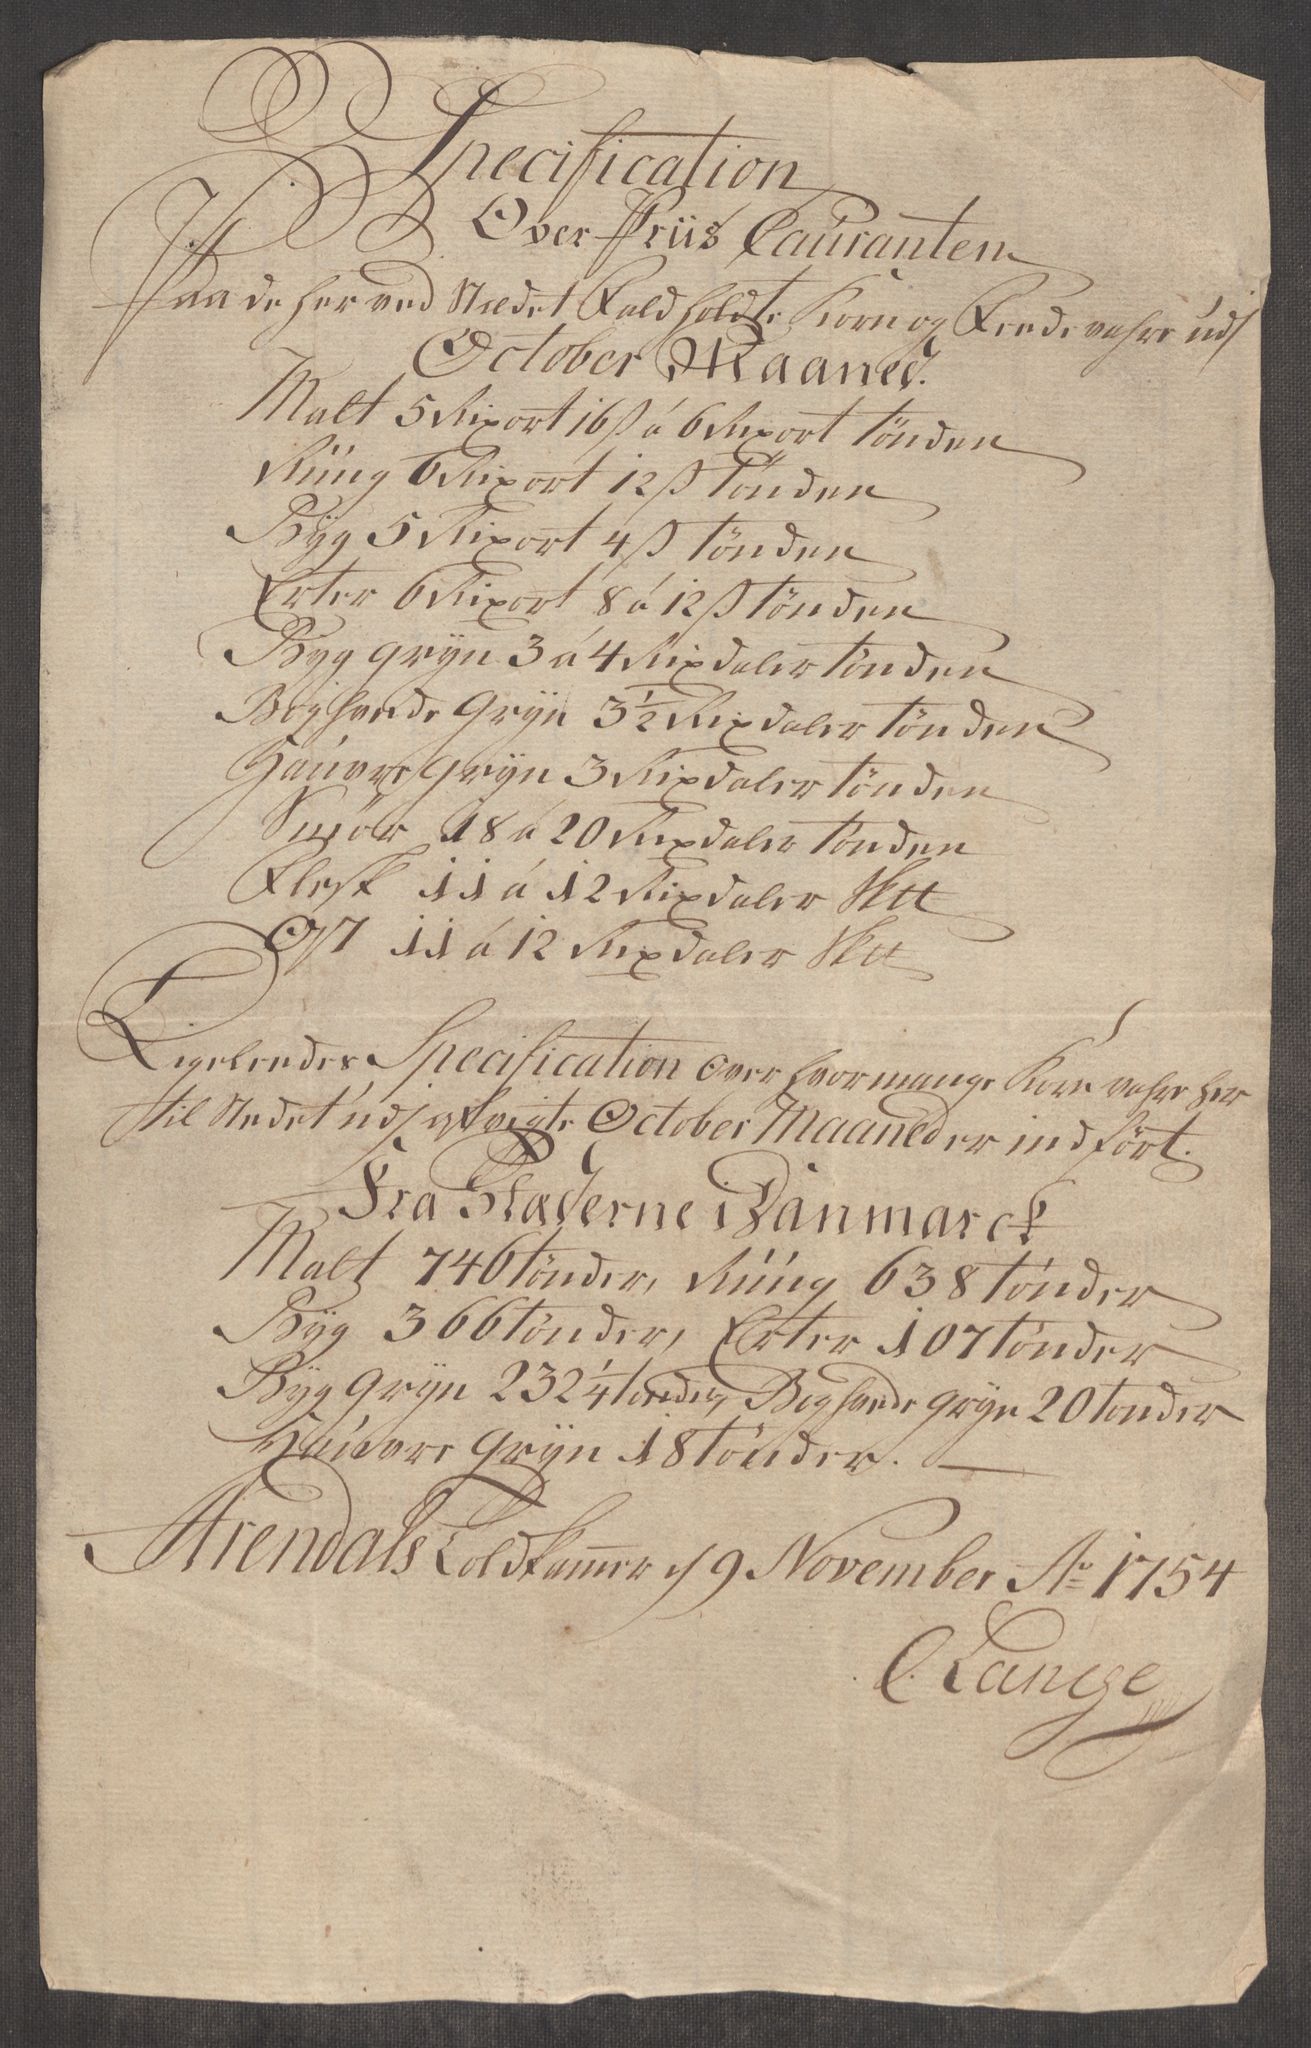 Specification
Over Priis Cauranten
Paa de her ved Stædet Fald holdte Korn og Feede vahre udj
October Maaned.
Malt 5 Rixort 16 β á 6 Rixort tönden
Rüng 6 Rixort 12 β tönden
Býg 5 Rixort 4 β tönden
Erter 6 Rixort 8 á 12 β tönden
Býg grÿn 3 á 4 Rixdaler tönden
Boghvede Grÿn 3½ Rixdaler tönden
Haúvre grÿn 3 Rixdaler tönden
Smör 18 á 20 Rixdaler tönden
Flesk 11 á 12 Rixdaler Sktt
Ost 11 á 12 Rixdaler Sktt
Ligeleedes Specification over hvormange Korn vahre her
til Stedet udj afvigte October Maaned er indfört.
Fra Stæderne i Danmarck
Malt 746 tönder, Rúúg 638 tönder
Býg 366 tönder, Erter 107 tönder
Býg Grýn 232¼ tönder, Boghvede grýn 20 tönder
Haúvre Grýn 18 tönder.
Arendals Toldkammer d 9 November Ao 1754
C. Lange